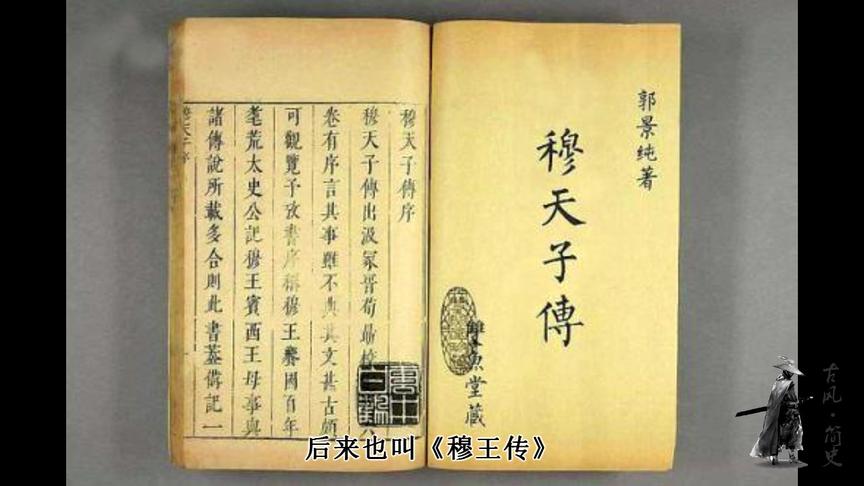 郭景純著
穆天子傳
雙魚堂藏
穆天子傳序
穆天子傳出汲冢晉荀勗校
卷有序言其事雖不典其文甚古頗
可觀覽予攷書序稱穆王饗國百年
耄荒太史公記穆王賓西王母事與
諸傳說所載多合則此書蓋備記一
后来也叫《穆王传》
古风·简史